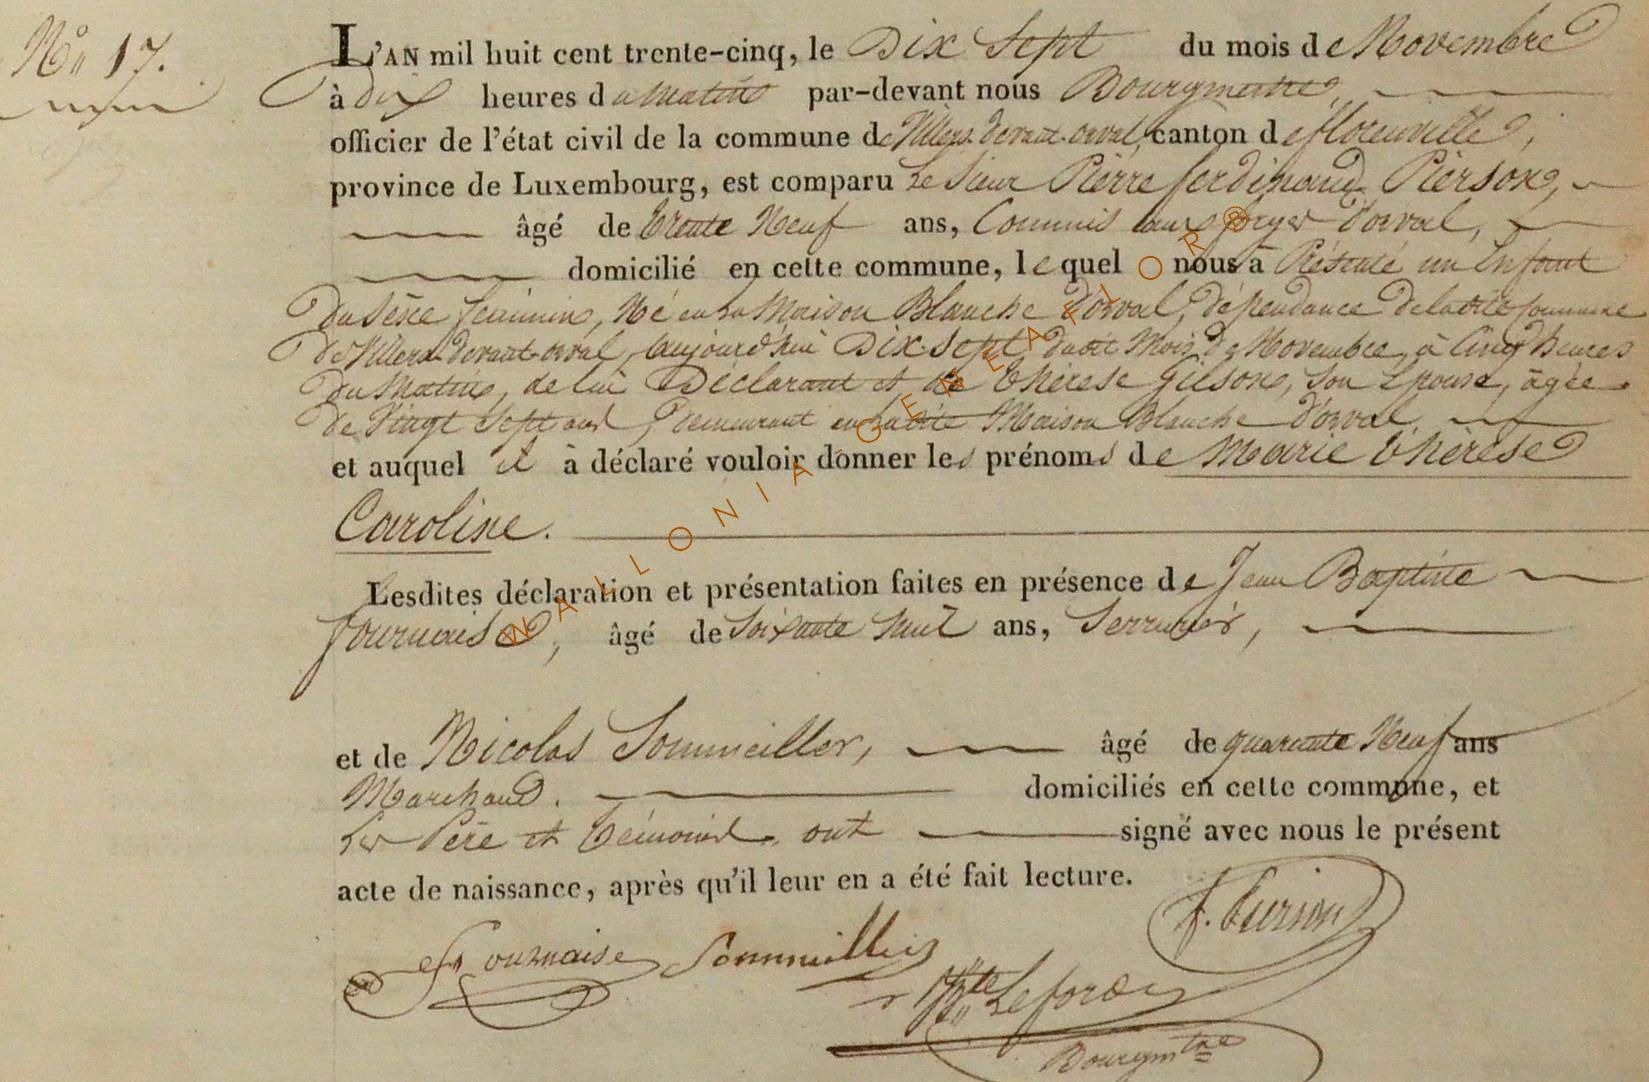 N° 17.
L'AN mil huit cent trente-cinq, le Dix Sept du mois de Novembre
à dix heures du matin par-devant nous Bourgmestre,
officier de l'état civil de la commune de Villers-devant-orval, canton de florenville,
province de Luxembourg, est comparu Le Sieur Pierre ferdinand Pierson,
âgé de trente Neuf ans, Commis aux forges d'orval,
domicilié en cette commune, lequel nous a Présenté un Enfant
du Sexe féminin, Né en la Maison Blanche d'orval, dépendance de ladite commune
de Villers-devant-orval, aujourd'hui Dix-Sept dudit Mois de Novembre, à Cinq heures
du Matin, de lui Déclarant et de thérèse Gilson, Son Epouse, âgée
de Vingt Sept ans, Demeurant en ladite Maison Blanche d'orval,
et auquel il à déclaré vouloir donner les prénoms de Marie thérèse
Caroline.
Lesdites déclaration et présentation faites en présence de Jean Baptiste
fournaise, âgé de Soixante huit ans, Serrurier,
et de Nicolas Sommeiller, âgé de quarante Neuf ans
Marchand. domiciliés en cette commune, et
Les Père et témoins, ont signé avec nous le présent
acte de naissance, après qu'il leur en a été fait lecture.
f. Pierson
fournaise Sommeiller
Bte Leforé
Bourgmtre
WALLONIA GENEAFLORB